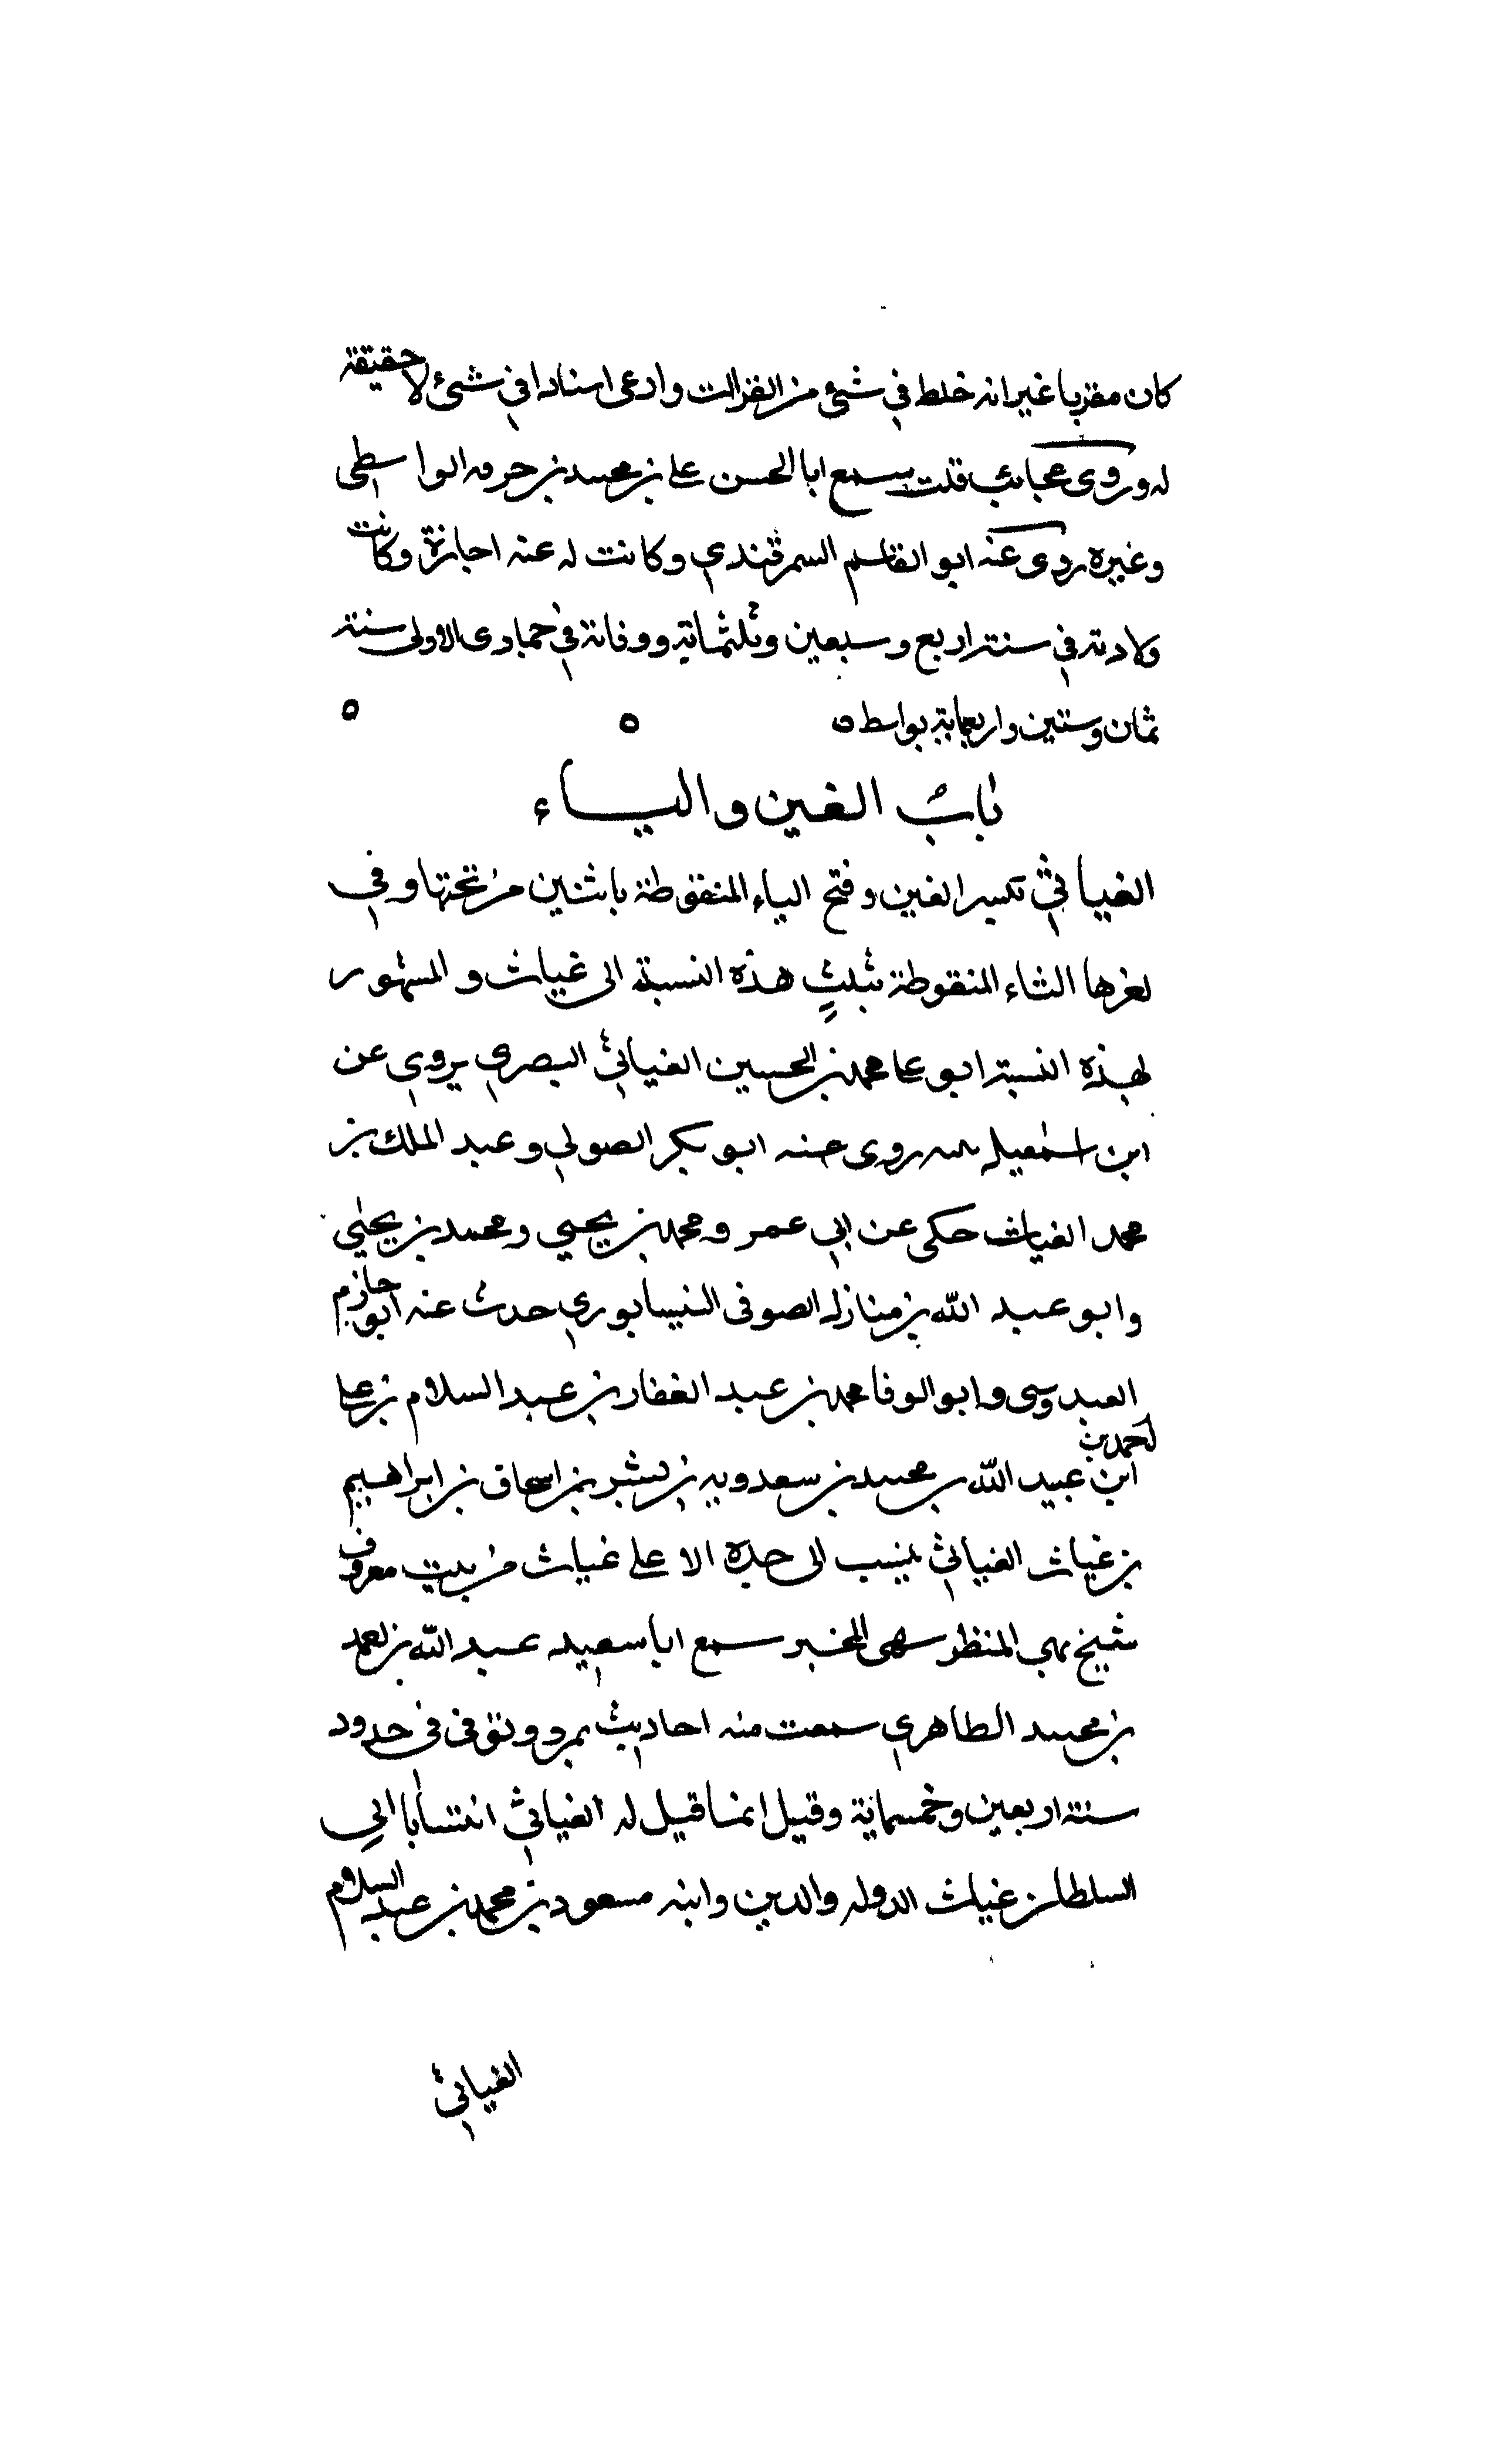 كان مقريا غير انه خلط في شئ من القراات وادعى اسنادا في شئ لا حقيقة
له وروى عجائب قلت سمع ابا الحسن على بن محمد بن خزفه الواسطى
وغيره روى عنه ابو القاسم السمرقندي وكانت له عنه اجازة وكانت
ولادته في سنة اربع وسبعين وثلثمائة ووفاتة في جمادى الاولى سنة
ثمان وستين واربعماية بواسط ٥ ٥ ٥
باب الغين والياء
الغياثي بكسر الغين وفتح الياء المنقوطة باثنين من تحتها وفي
اخرها الثاء المنقوطة بثلث هذه النسبة الى غياث والمشهور
بهذه النسبة ابو على محمد بن الحسين الغياثي البصري يروي عن
ابن اسمعيل روى عنه ابو بكر الصولي وعبد الملك بن
محمد الغياث حكى عن ابي عمر ومحمد بن يحيي ومحمد بن يحيي
وابو عبد الله بن منازل الصوفى النيسابوري حدث عنه ابو حازم
العبدوسى وابو الوفا محمد بن عبد الغفار بن عبد السلام بن على
احمد بن
ابن عبيد الله بن محمد بن سعدويه بن بشر بن اسحاق بن ابراهيم
بن غياث الغياثي ينسب الى جده الاعلى غياث من بيت معروف
شيخ بهي المنظر سهى المخبر سمع ابا سعيد عبد الله بن احمد
بن محمد الطاهري سمعت منه احاديث بمرو وتوفى فى حدود
سنة اربعين وخمسماية وقيل انما قيل له الغياثي انتسابا الي
السلطان غياث الدوله والدين وابنه مسعود بن محمد بن عبد السلام
الغياثي